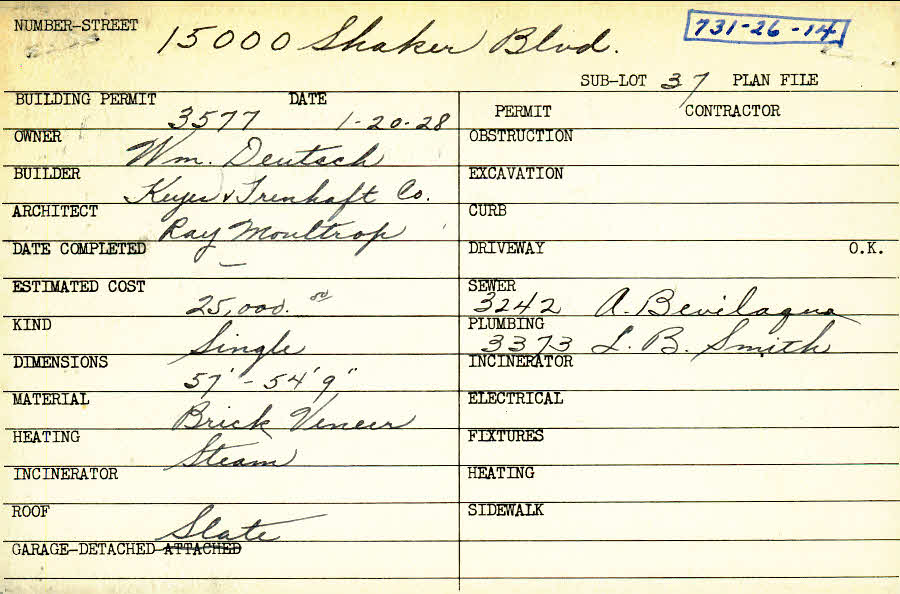 NUMBER-STREET 15000 Shaker Blvd. 731-26-14
SUB-LOT 37 PLAN FILE
BUILDING PERMIT 3577 DATE 1-20-28
OWNER Wm. Deutsch
BUILDER Keyes & Trenhaft Co.
ARCHITECT Ray Moultrop
DATE COMPLETED –
ESTIMATED COST 25,000.00
KIND Single
DIMENSIONS 57' - 54'9"
MATERIAL Brick Veneer
HEATING Steam
INCINERATOR
ROOF Slate
GARAGE-DETACHED-ATTACHED
PERMIT CONTRACTOR
OBSTRUCTION
EXCAVATION
CURB
DRIVEWAY O.K.
SEWER 3242 A. Bevilaqua
PLUMBING 3373 L. B. Smith
INCINERATOR
ELECTRICAL
FIXTURES
HEATING
SIDEWALK